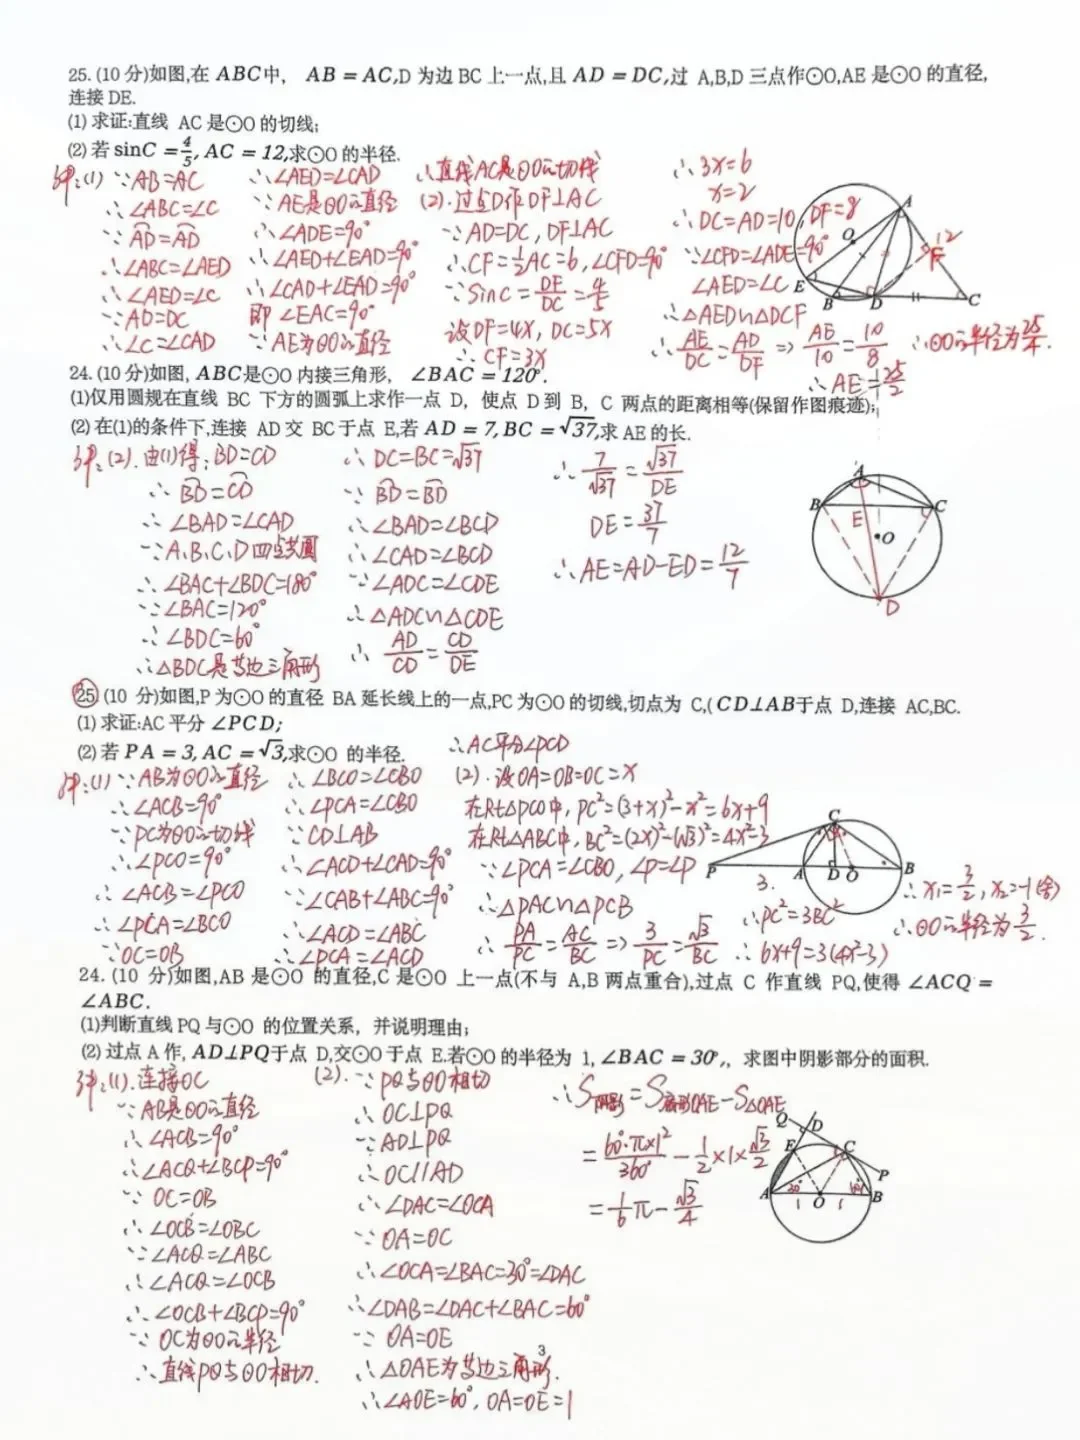 25. (10 分)如图,在 ABC中, AB = AC,D 为边 BC 上一点,且 AD = DC,过 A,B,D 三点作⊙O,AE 是⊙O 的直径,
连接 DE.
(1) 求证:直线 AC 是⊙O 的切线;
(2) 若 sinC = 4/5, AC = 12,求⊙O 的半径.
解:(1) ∵AB=AC
∴∠ABC=∠C
∵AD=AD
∴∠ABC=∠AED
∴∠AED=∠C
∵AD=DC
∴∠C=∠CAD
∴∠AED=∠CAD
∵AE是⊙O的直径
∴∠ADE=90°
∴∠AED+∠EAD=90°
∴∠CAD+∠EAD=90°
即 ∠EAC=90°
∵AE为⊙O的直径
∴直线AC是⊙O的切线
(2).过点D作DF⊥AC
∵AD=DC, DF⊥AC
∴CF=1/2AC=6, ∠CFD=90°
∵SinC=DF/DC=4/5
设DF=4X, DC=5X
∴CF=3X
∴3X=6
X=2
∴DC=AD=10, DF=8
∵∠CFD=∠ADE=90°
∠AED=∠C
∴△AED∽△DCF
∴AE/DC=AD/DF => AE/10=10/8
∴AE=25/2
∴⊙O的半径为25/4.
A
O
12
F
E
B
D
C
24. (10 分)如图, ABC是⊙O 内接三角形, ∠BAC = 120°.
(1)仅用圆规在直线 BC 下方的圆弧上求作一点 D, 使点 D 到 B, C 两点的距离相等(保留作图痕迹);
(2) 在(1)的条件下,连接 AD 交 BC 于点 E,若 AD = 7, BC = √37,求 AE 的长.
解:(2). 由(1)得: BD=CD
∴BD=CD
∴∠BAD=∠CAD
∵A、B、C、D四点共圆
∴∠BAC+∠BDC=180°
∵∠BAC=120°
∴∠BDC=60°
∴△BDC是等边三角形
∴DC=BC=√37
∵BD=BD
∴∠BAD=∠BCD
∴∠CAD=∠BCD
∵∠ADC=∠CDE
∴△ADC∽△CDE
∴AD/CD=CD/DE
∴7/√37=√37/DE
DE=37/7
∴AE=AD-ED=12/7
A
B
C
E
O
D
25 (10 分)如图,P 为⊙O 的直径 BA 延长线上的一点,PC 为⊙O 的切线,切点为 C,( CD⊥AB于点 D,连接 AC,BC.
(1) 求证:AC 平分 ∠PCD;
(2) 若 PA = 3, AC = √3,求⊙O 的半径.
解:(1) ∵AB为⊙O的直径
∴∠ACB=90°
∵PC为⊙O的切线
∴∠PCO=90°
∴∠ACB=∠PCO
∴∠PCA=∠BCO
∵OC=OB
∴∠BCO=∠CBO
∴∠PCA=∠CBO
∵CD⊥AB
∴∠ACD+∠CAD=90°
∵∠CAB+∠ABC=90°
∴∠ACD=∠ABC
∴∠PCA=∠ACD
∴AC平分∠PCD
(2).设OA=OB=OC=x
在Rt△PCO中, PC²=(3+x)²-x²=6x+9
在Rt△ABC中, BC²=(2x)²-(√3)²=4x²-3
∵∠PCA=∠CBO, ∠P=∠P
∴△PAC∽△PCB
∴PA/PC=AC/BC => 3/PC=√3/BC
3.
∴PC²=3BC²
∴6x+9=3(4x²-3)
∴x₁=3/2, x₂=-1(舍)
∴⊙O的半径为3/2.
C
P
A
D
O
B
24. (10 分)如图,AB 是⊙O 的直径,C 是⊙O 上一点(不与 A,B 两点重合),过点 C 作直线 PQ,使得 ∠ACQ =
∠ABC.
(1)判断直线 PQ 与⊙O 的位置关系, 并说明理由;
(2) 过点 A 作, AD⊥PQ于点 D,交⊙O 于点 E.若⊙O 的半径为 1, ∠BAC = 30°,, 求图中阴影部分的面积.
解:(1).连接OC
∵AB是⊙O的直径
∴∠ACB=90°
∴∠ACQ+∠BCP=90°
∵OC=OB
∴∠OCB=∠OBC
∵∠ACQ=∠ABC
∴∠ACQ=∠OCB
∴∠OCB+∠BCP=90°
∵OC为⊙O的半径
∴直线PQ与⊙O相切.
(2).∵PQ与⊙O相切
∴OC⊥PQ
∵AD⊥PQ
∴OC∥AD
∴∠DAC=∠OCA
∵OA=OC
∴∠OCA=∠BAC=30°=∠DAC
∴∠DAB=∠DAC+∠BAC=60°
∵OA=OE
∴△OAE为等边三角形.
∴∠AOE=60°, OA=OE=1
∴S阴影=S扇形OAE-S△OAE
=60°·π×1²/360°-1/2×1×√3/2
=1/6π-√3/4
Q
D
E
C
P
A
30°
1
O
1
60°
B
3